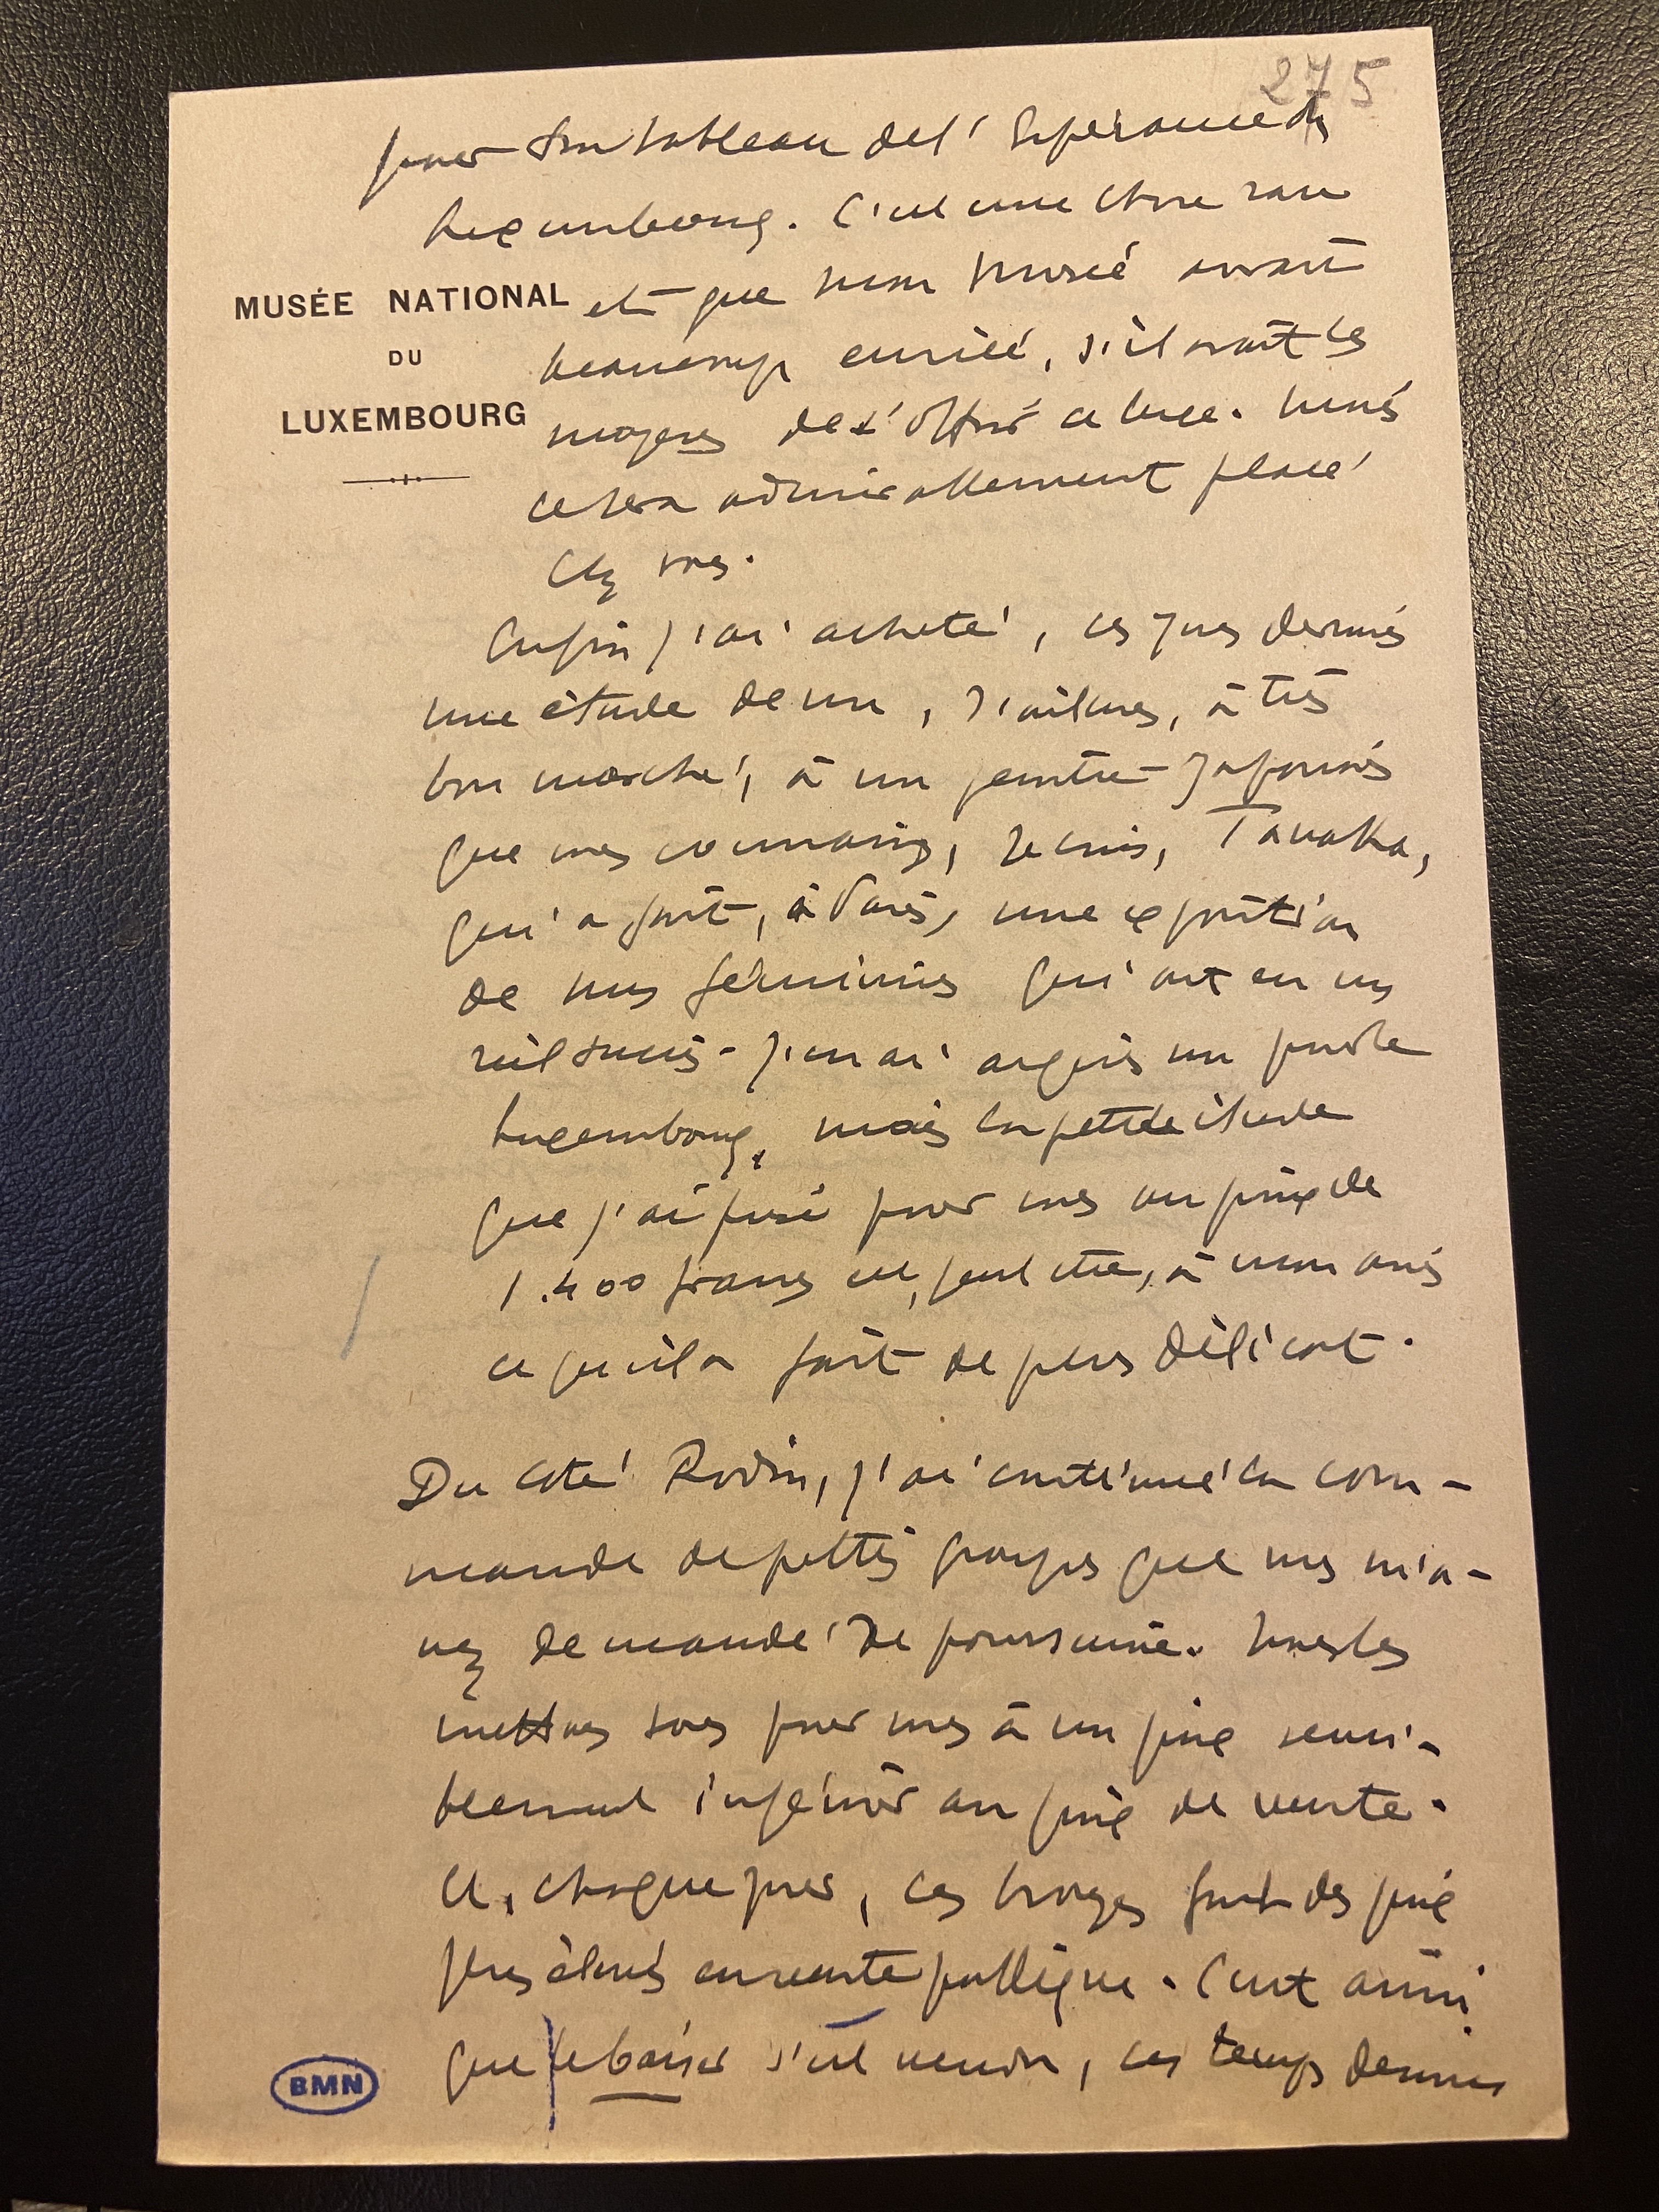 275
pour son tableau de l'Espérance du
Luxembourg. C'est une chose rare
MUSÉE NATIONAL
DU
LUXEMBOURG
et que mon Musée aurait
beaucoup envié, s'il avait les
moyens de s'offrir ce luxe. Mais
ce sera admirablement placé
chez vous.
Enfin j'ai acheté, ces jours derniers
une étude de nu, d'ailleurs, à très
bon marché, à un peintre Japonais
que vous connaissez, je crois, Tanaka,
qui a fait, à Paris, une exposition
de nus féminins qui ont eu un
réel succès. J'en ai acquis un pour le
Luxembourg, mais la petite étude
que j'ai prise pour vous au prix de
1.400 francs est, peut être, à mon avis
ce qu'il a fait de plus délicat.
Du coté Rodin, j'ai continué la com-
mande de petits groupes que vous m'a-
vez demandé de poursuivre. Nous les
mettons tous pour vous à un prix sensi-
blement inférieur au prix de vente.
Et, chaque jour, ces bronzes font des prix
plus élevés en vente publique. C'est ainsi
que le baiser s'est vendu, ces temps derniers
BMN